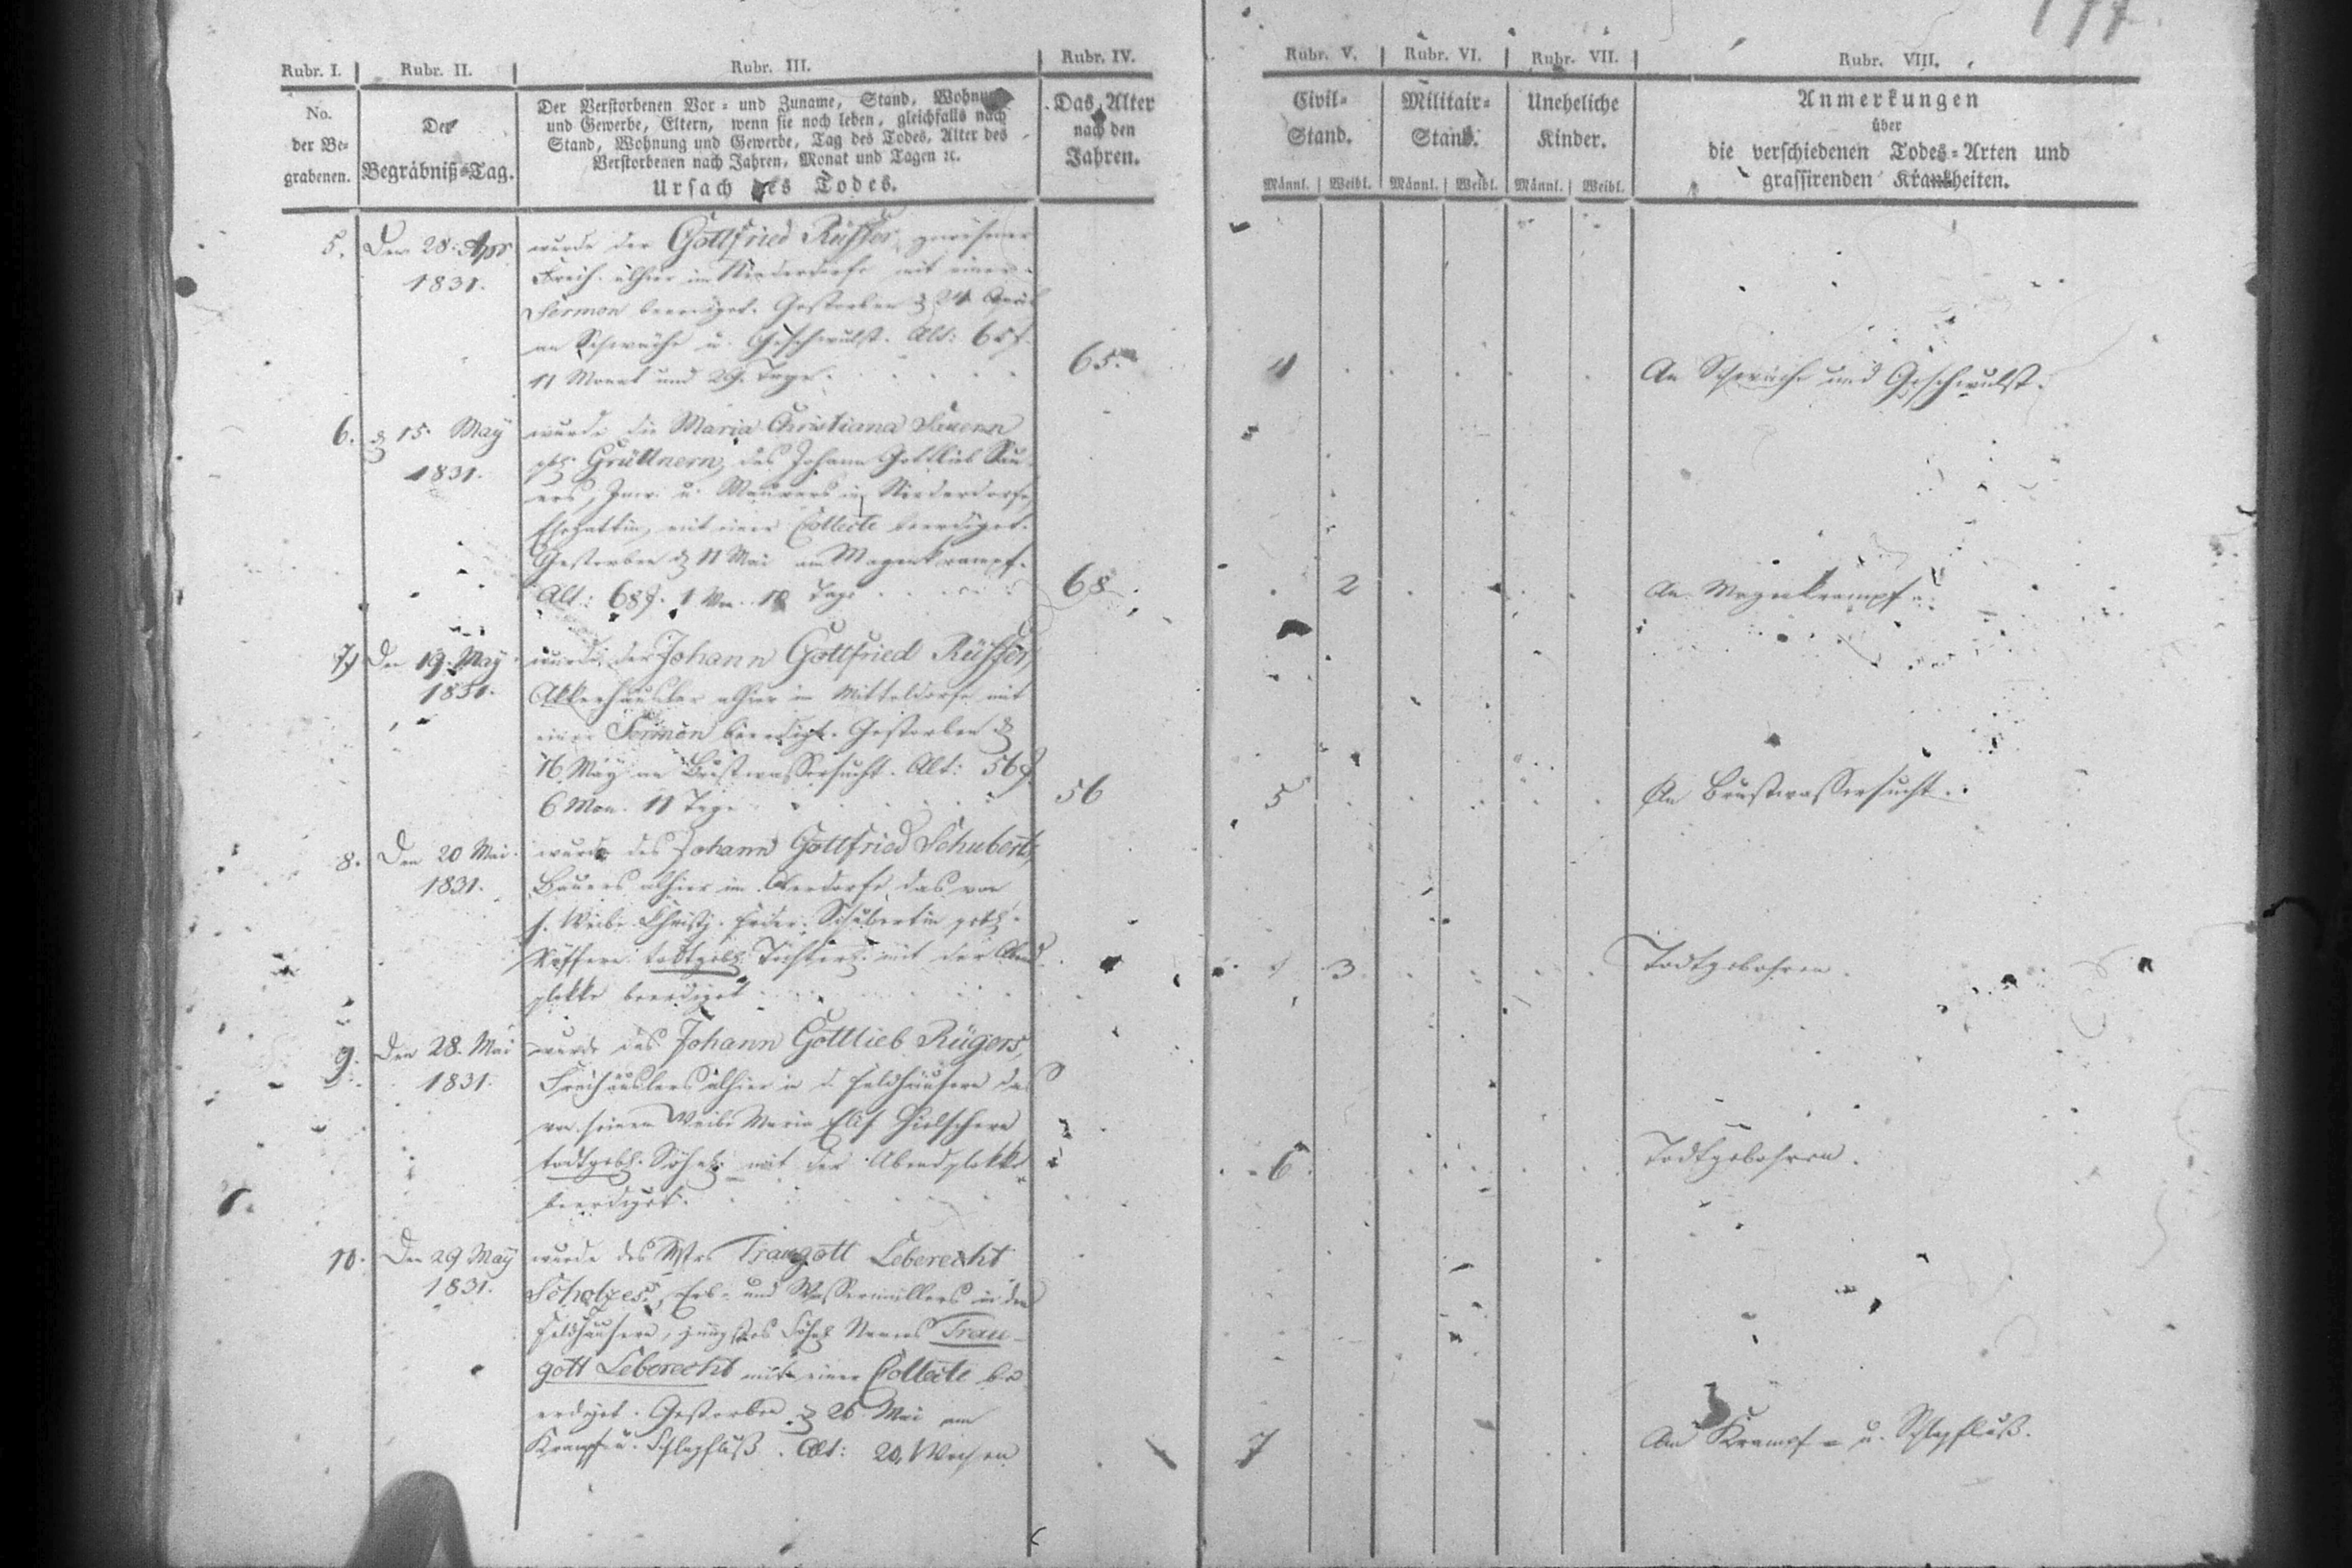 Rubr. I. Rubr. II. Rubr. III. Rubr. IV. Rubr. V. Rubr. VI. Rubr. VII. Rubr. VIII.
No.
der Be-
grabenen.
Der
Begräbniß-Tag.
Der Verstorbenen Vor- und Zuname, Stand, Wohnung
und Gewerbe, Eltern, wenn sie noch leben, gleichfalls nach
Stand, Wohnung und Gewerbe, Tag des Todes, Alter des
Verstorbenen nach Jahren, Monat und Tagen ꝛc.
Ursach des Todes.
Das Alter
nach den
Jahren.
Civil-
Stand.
Männl. Weibl.
Militair-
Stand.
Männl. Weibl.
Uneheliche
Kinder.
Männl. Weibl.
Anmerkungen
über
die verschiedenen Todes-Arten und
grassirenden Krankheiten.
5. Den 28. Apr wurde der Gottfried Rüffer, gewesener
1831. Freih. alhier im Niederdorfe mit einer
Sermon beerdiget. Gestorben d. 24 April
an Schwäche u. Geschwulst. Alt: 65 J.
11 Monat und 29. Tage. 65. 4 An Schwäche und Geschwulst.
6. d. 15. May wurde die Maria Christiana
1831. geb. Grüttnern, des Johann Gottlieb
ers, Inw. u. Maurers in Niederdorfe,
Ehegattin, mit einer Collecte beerdiget.
Gestorben d. 11 Mai am Magenkrampf.
Alt: 68 J. 1 Mon. Tage 68 2 An Magenkrampf.
7. Den 19. May wurde der Johann Gottfried Rüffer,
1831. Akkerhäusler alhier im Mitteldorfe mit
einer Sermon beerdigt. Gestorben d.
16 May an Brustwassersucht. Alt: 56 J.
6 Mon. 11 Tage 56 5 An Brustwassersucht.
8. Den 20 Mai wurde des Johann Gottfried Schubert,
1831. Bauers alhier im Oberdorfe das von
s. Weibe Christ. Frider. Schubertin geb.
Rüffern todtgeb. Töchterl. mit der Abend
glokke beerdiget 3 Todtgebohren.
9. Den 28. Mai wurde des Johann Gottlieb Rügers,
1831. Freihäuslers alhier in d. Feldhäusern das
von seinem Weibe Maria Elis. Hielschern
todtgeb. Söhnl. mit der Abendglokke
beerdiget. 6 Todtgebohren.
10. Den 29 May wurde des Mstrs Traugott Leberecht
1831. Scholzes, Erb- und Wassermüllers in den
Feldhäusern, jüngstes Söhnl. Namens Trau-
gott Leberecht mit einer Collecte be
erdiget. Gestorben d. 26 Mai am
Krampf u. Schlagfluß. Alt: 20 Wochen 7 An Krampf- u. Schlagfluß.